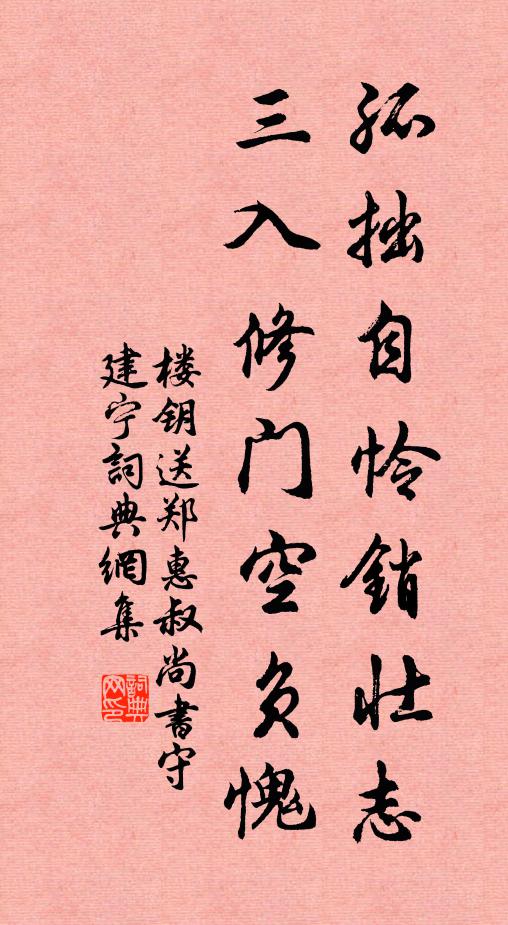 孤拙自怜销壮志
三入修门空负愧
楼钥送郑惠叔尚书守
建宁詞典網集
詞典
网印